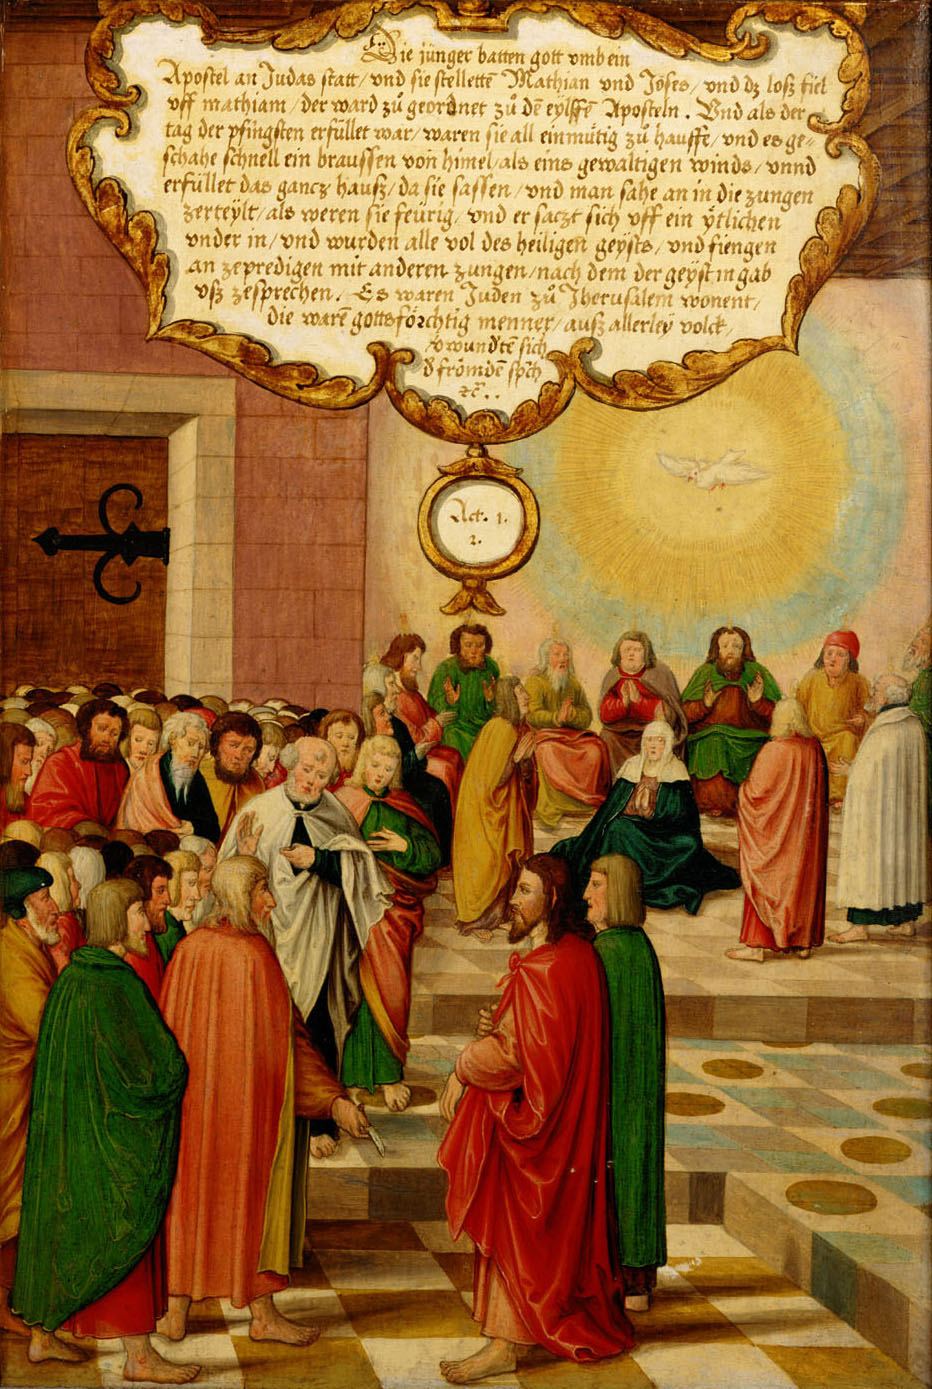 Die jünger batten gott vmb ein
Apostel an Judas statt / vnd sie stelletē Mathian vnd Joses / vnd dz losz fiel
vff mathiam / der ward zů geordnet zů dē eylffē Aposteln . Vnd als der
tag der pfingsten erfüllet war / waren sie all einmütig zů hauffe / vnd es ge-
schahe schnell ein braussen von himel / als eins gewaltigen winds / vnnd
erfüllet das gancz hausz / da sie sassen / vnd man sahe an in die zungen
zerteylt / als weren sie feürig / vnd er saczt sich vff ein ytlichen
vnder in / vnd wurden alle vol des heiligen geysts / vnd fiengen
an zepredigen mit anderen zungen / nach dem der geyst in gab
vsz zesprechen . Es waren Juden zů Jherusalem wonent /
die warē gottsförchtig menner / ausz allerley volck /
v̄wundtē sich
d̄ frömdē spch
ꝛc̄ . .
Act . 1 .
2 .